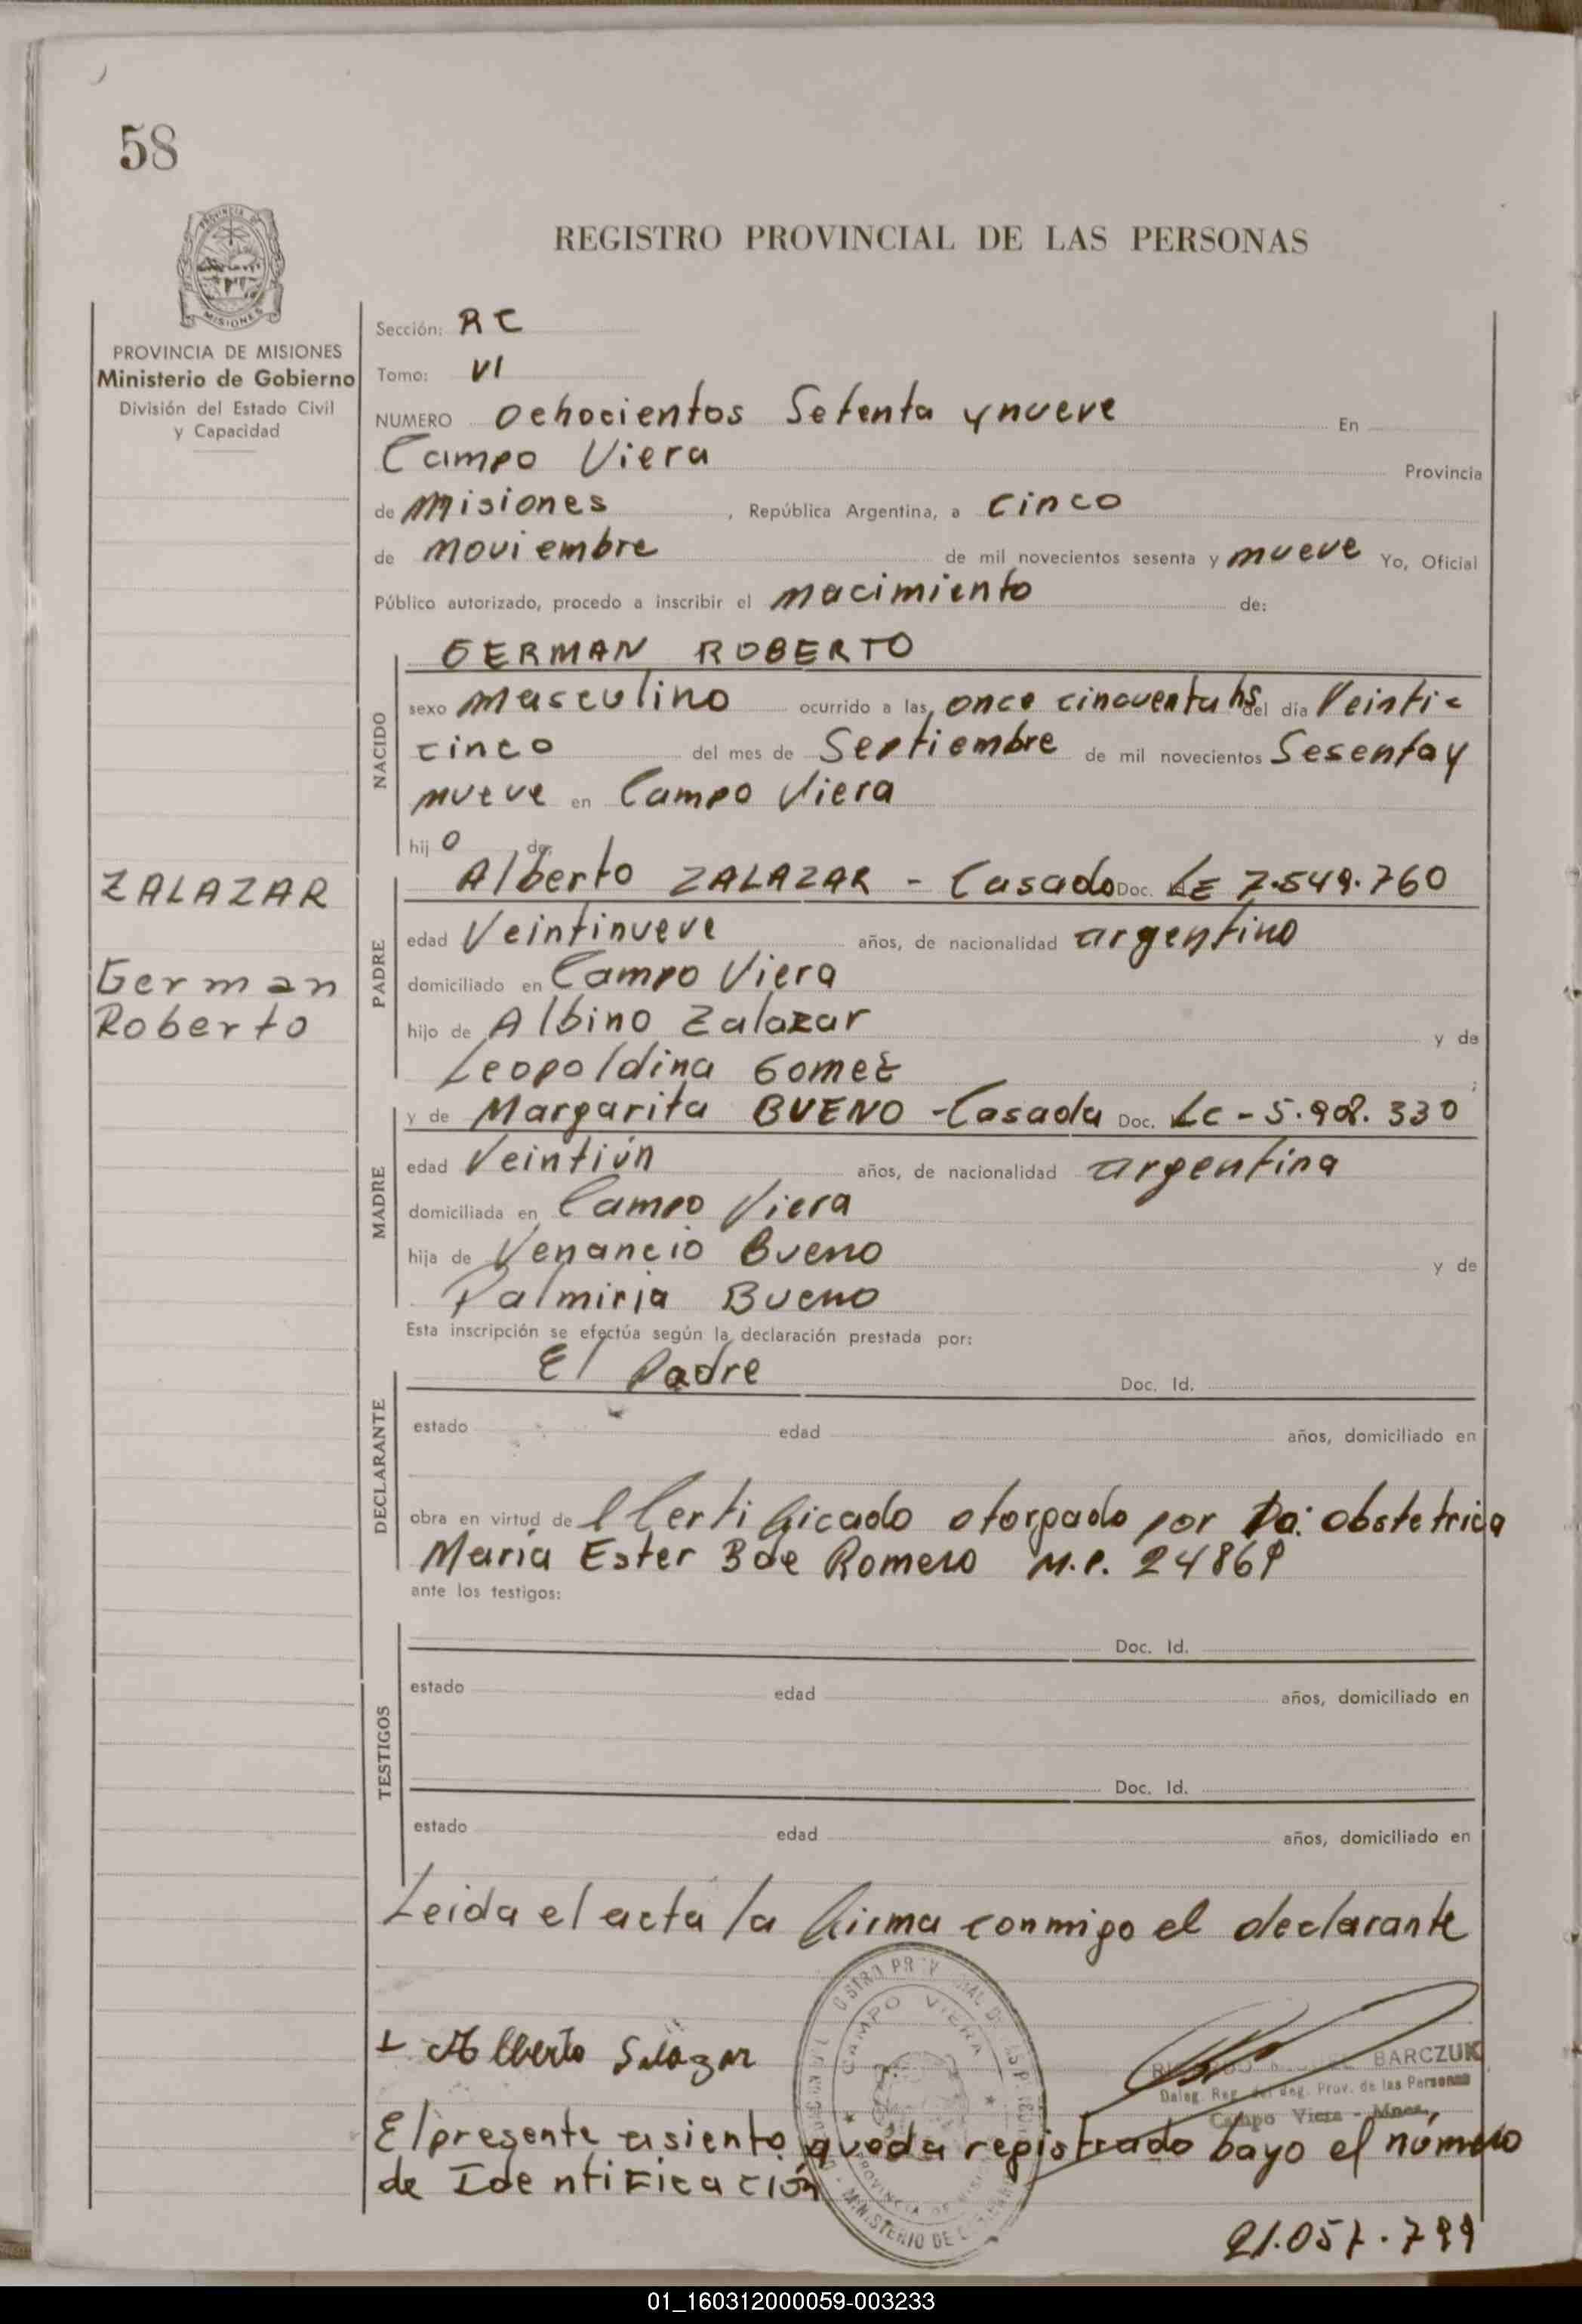 58
REGISTRO PROVINCIAL DE LAS PERSONAS
MISIONES
PROVINCIA DE MISIONES
Ministerio de Gobierno
División del Estado Civil
y Capacidad
Sección: RC
Tomo: VI
NUMERO ochocientos Setenta y nueve En
Campo Viera Provincia
de Misiones , República Argentina, a cinco
de noviembre de mil novecientos sesenta y nueve Yo, Oficial
Público autorizado, procedo a inscribir el nacimiento de:
NACIDO
GERMAN ROBERTO
sexo masculino ocurrido a las once cincuenta hs del día Veinti-
cinco del mes de Septiembre de mil novecientos Sesenta y
nueve en Campo Viera
hij o de
ZALAZAR
German
Roberto
PADRE
Alberto ZALAZAR - Casado Doc. LE 7.549.760
edad Veintinueve años, de nacionalidad argentino
domiciliado en Campo Viera
hijo de Albino Zalazar y de
Leopoldina Gomez ;
MADRE
y de Margarita BUENO - Casada Doc. LC - 5.908.330
edad Veintiún años, de nacionalidad argentina
domiciliada en Campo Viera
hija de Venancio Bueno y de
Palmiria Bueno
Esta inscripción se efectúa según la declaración prestada por:
DECLARANTE
El Padre Doc. Id.
estado edad años, domiciliado en
obra en virtud de Certificado otorgado por Da: obstetrica
Maria Ester B de Romero M.P.
ante los testigos:
TESTIGOS
Doc. Id.
estado edad años, domiciliado en
Doc. Id.
estado edad años, domiciliado en
Leida el acta la firma conmigo el declarante
CAMPO VIERA
Alberto Salazar
BARCZUK
Deleg. Reg. del Reg. Prov. de las Personas
Campo Viera - Mnes.
El presente asiento queda registrado bayo el número
de Identificación
21.057.799
01_160312000059-003233